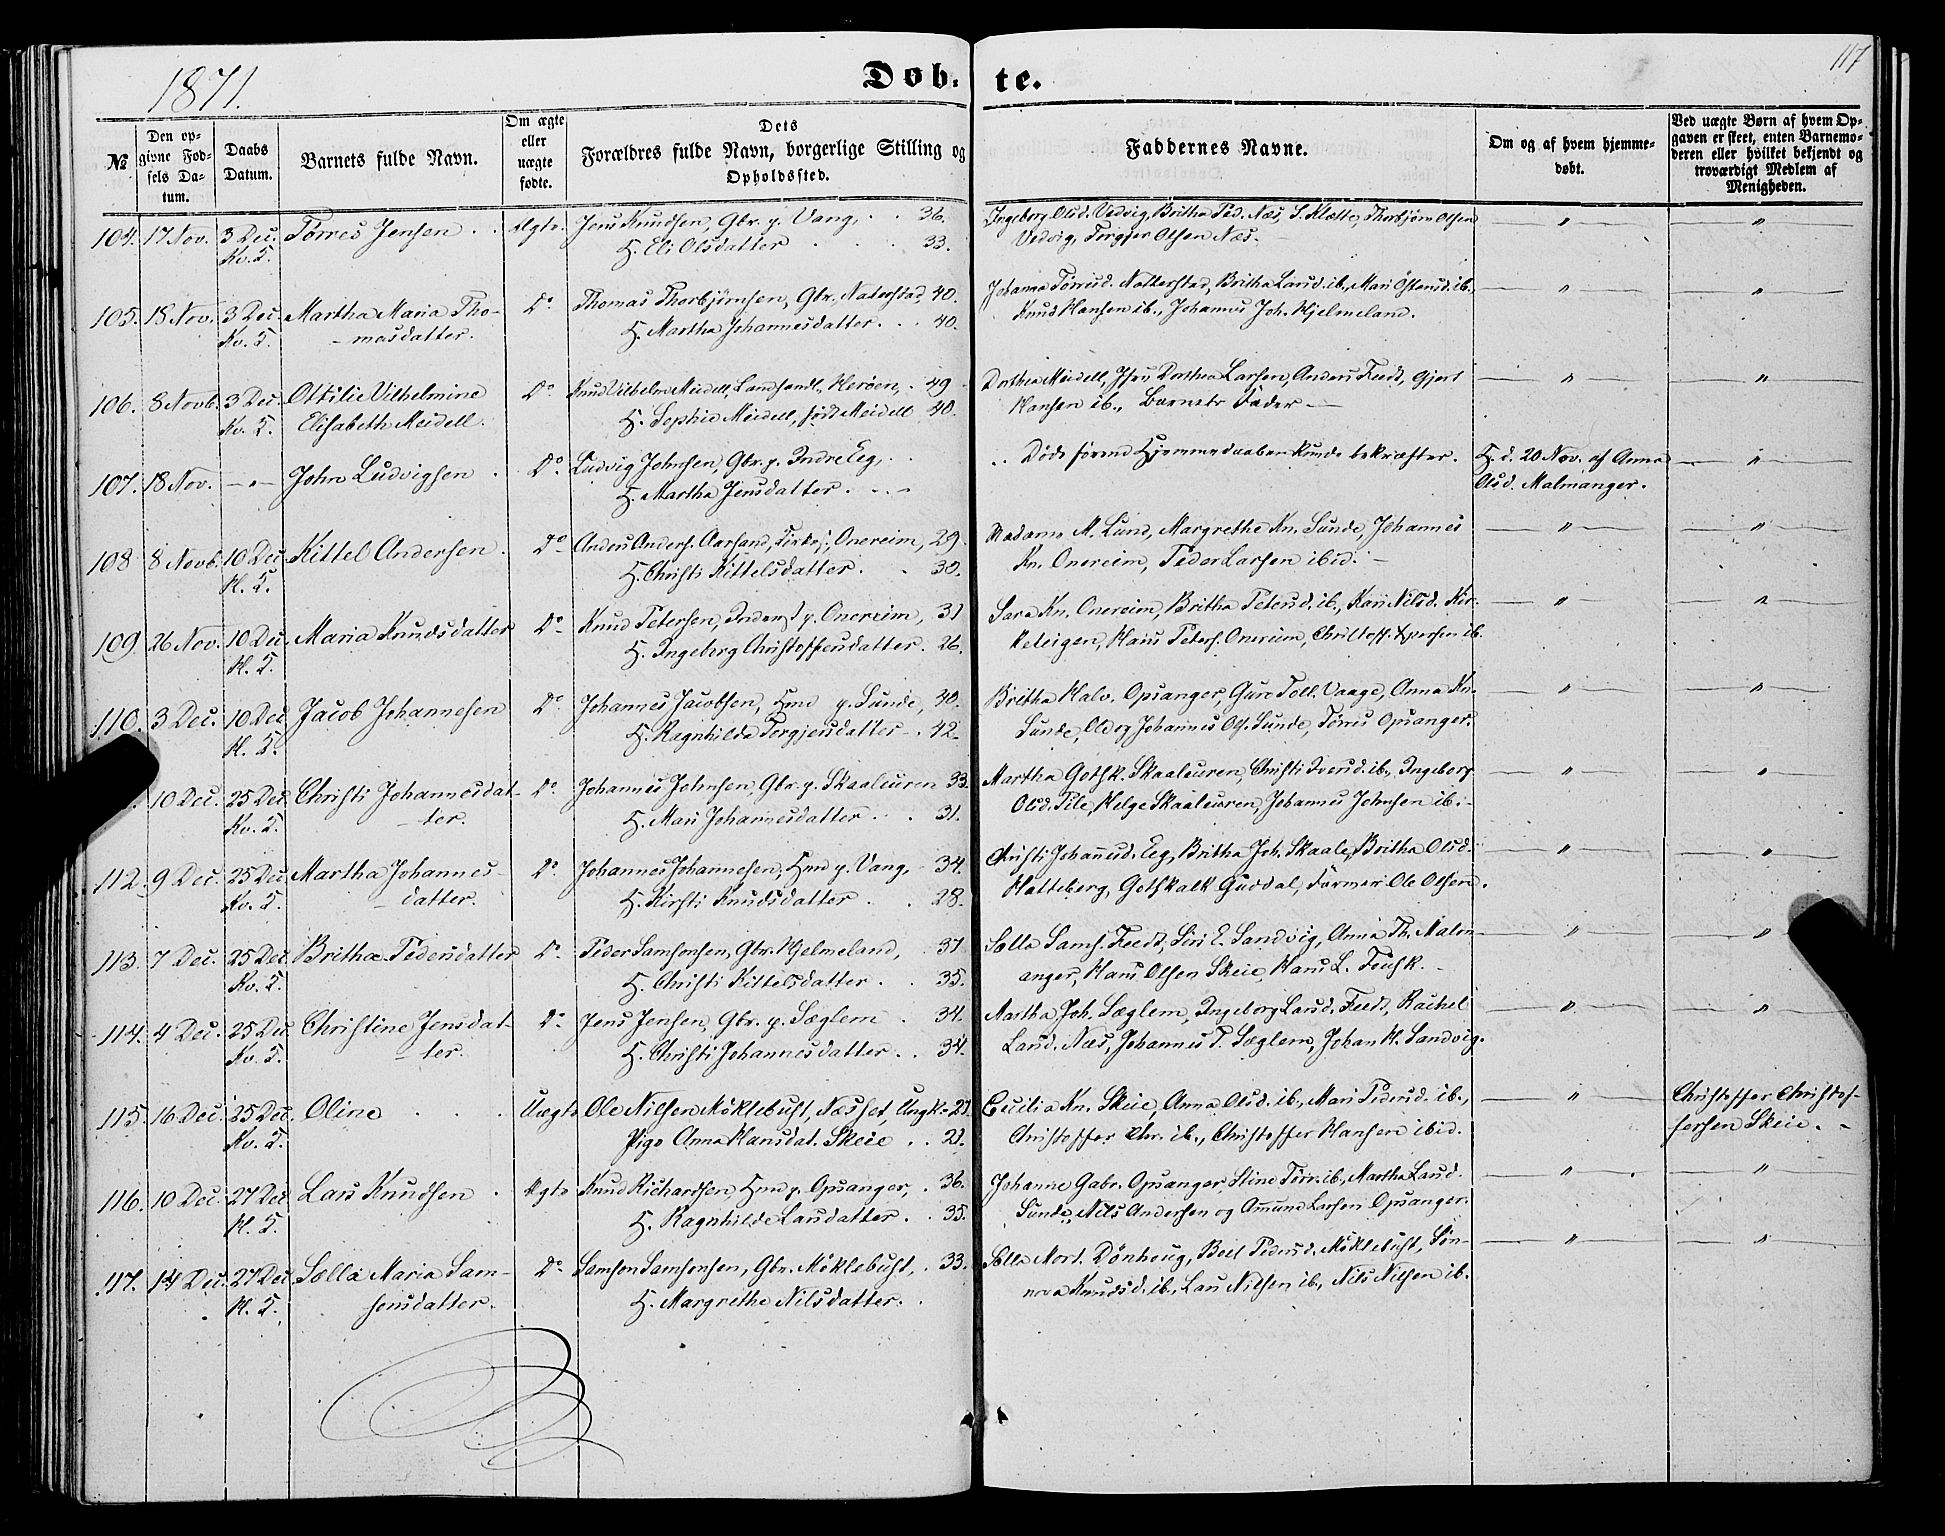 1871.
Døb-
te.
117
№
Den op-
givne Fød-
sels Da-
tum.
Daabs
Datum.
Barnets fulde Navn.
Om ægte
eller
uægte
fødte.
Dets
Forældres fulde Navn, borgerlige Stilling og
Opholdssted.
Faddernes Navne.
Om og af hvem hjemme-
døbt.
Ved uægte Børn af hvem Op-
gaven er skeet, enten Barnemo-
deren eller hvilket bekjendt og
troværdigt Medlem af
Menigheden.
104. 17 Nov. 3 Dec. Tørres Jensen Ægte Jens Knudsen, Gbr. p. Vang, 36. Ingeborg Olsd. Vedvig, Britha Ped. Næs, S. Klette, Thorbjørn Olsen " "
Kv. K. H. Eli Olsdatter 33. Vedvig, Torgjer Olsen Næs.
105. 18 Nov. 3 Dec. Martha Maria Tho- Do Thomas Thorbjørnsen, Gbr. Naterstad 40. Johanna Tørrisd. Natterstad, Britha Larsd. ib., Mari Østensd. ib., " "
Kv. K. masdatter. H. Martha Johannesdatter 40. Knud Hansen ib., Johannes Joh. Hjelmeland.
106. 8 Novb. 3 Dec. Ottilie Vilhelmine Do Knud Vilhelm Meidell, Landhandl. Herøen, 49 Dorthea Meidell, Jfru Dorthea Larsen, Anders Feedt, Gjert " "
Kv. K. Elisabeth Meidell. H. Sophie Meidell, født Meidell 40. Hansen ib., Barnets Fader
107. 18 Nov. " John Ludvigsen Do Ludvig Johnsen, Gbr. p. Indre Eeg, Døde førend Hjemmedaaben kunde bekræftes. H. d. 20 Nov. af Anna "
H. Martha Jensdatter. Olsd. Malmanger.
108 8 Novb. 10 Dec Kittel Andersen Do Anders Anders. Aarsand, Onereim, 29 Madame M. Lund, Margrethe Kn. Sunde, Johannes " "
H. K. H. Christi Kittelsdatter. 30. Kn. Onereim, Peder Larsen ibid.
109. 26 Nov. 10 Dec. Maria Knudsdatter Do Knud Petersen, Inderst p. Onereim, 31 Sara Kn. Onereim, Britha Petersd. ib., Kari Nilsd. Kir- " "
H. K. H. Ingeborg Christoffersdatter. 26. keteigen, Hans Peters. Onereim, Christoff. Xpersen ib.
110. 3 Dec. 10 Dec Jacob Johannesen Do Johannes Jacobsen, Hmd p. Sunde, 40. Britha Halv. Opsanger, Guro Toll. Vaage, Anna Kn. " "
H. K. H. Ragnhilda Torgjersdatter 42 Sunde, Ole og Johannes Ols. Sunde, Tørres Opsanger.
10 Dec. 25 Dec. Christi Johannesdat- Do Johannes Johnsen, Gbr. p. Skaaleuren 33. Martha Gothsk. Skaaleuren, Christi Iversd. ib., Ingeborg " "
Kv. K. ter. H. Mari Johannesdatter 31. Olsd. Pile, Helge Skaaleuren, Johannes Johnsen ib.
112. 9 Dec. 25 Dec Martha Johannes Do Johannes Johannesen, Hmd p. Vang, 34. Christi Johannesd. Eeg, Britha Joh. Skaale, Britha Olsd. " "
Kv. K. datter. H. Kirsti Knudsdatter 28. Hatteberg, Gothskalk Guddal, Farmer Ole Olsen.
113. 7 Dec. 25 Dec. Britha Pedersdatter Do Peder Samsonsen, Gbr. Hjelmeland, 37. Sælla Sams. Feedt, Siri E. Sandvig, Anna Th. Malm- " "
Kv. K. H. Christi Kittelsdatter. 35. anger, Hans Olsen Skeie, Hans L. Teusk.
114. 4 Dec. 25 Dec Christine Jensdat- Do Jens Jensen, Gbr. p. Sæglem 34. Martha Joh. Sæglem, Ingeborg Larsd. Feedt, Rachel " "
Kv. K. ter. H. Christi Johannesdatter 34. Larsd. Næs, Johannes T. Sæglem, Johan H. Sandvig.
115. 16 Dec. 25 Dec. Oline Uægte Ole Nilsen Møklebust, Næsset, Ungk. 21 Cecilia Kn. Skeie, Anna Olsd. ib., Mari Pedersd. ib., " Christoffer Christof-
Kv. K. Pige Anna Hansdat. Skeie 21. Christoffer Chr. ib., Christoffer Hansen ibid. fersen Skeie.
116. 10 Dec. 27 Dec Lars Knudsen Ægte Knud Richardsen, Hmd p. Opsanger, 36. Johanne Gabr. Opsanger, Stine Tørr. ib., Martha Larsd. " "
H. K. H. Ragnhilde Larsdatter. 35. Sunde, Nils Andersen og Amund Larsen Opsanger.
117. 14 Dec. 27 Dec Sælla Maria Sam- Do Samson Samsonsen, Gbr. Møklebust, 33. Sælla Mort. Dønhoug, Beel Pedersd. Møklebust, Søn- " "
H. K. sonsdatter. H. Margrethe Nilsdatter. nova Knudsd. ib., Lars Nilsen ib., Nils Nilsen ib.